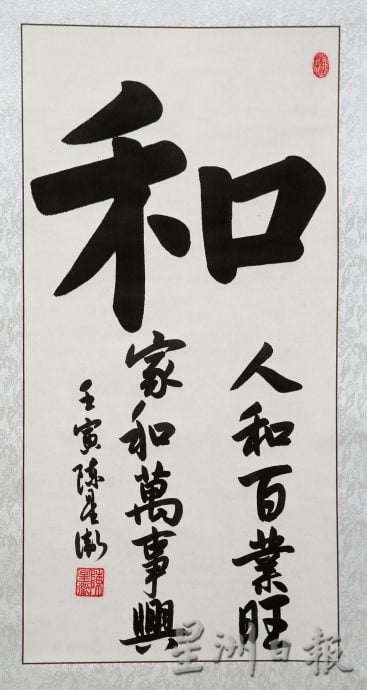 和
人和百業旺
家和萬事興
壬寅陳
星洲日报